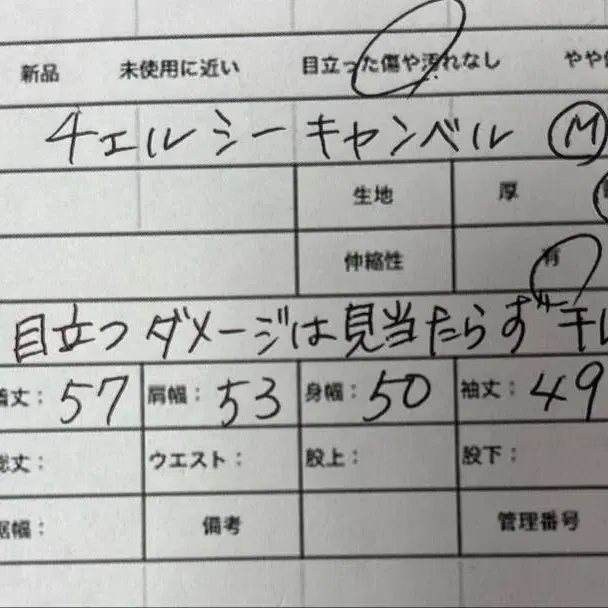 新品 未使用に近い 目立った傷や汚れなし やや
チェルシーキャンベル M
生地 厚
伸縮性 有
目立つダメージは見当たらず
着丈: 57 肩幅: 53 身幅: 50 袖丈: 49
総丈: ウエスト: 股上: 股下:
裾幅: 備考 管理番号